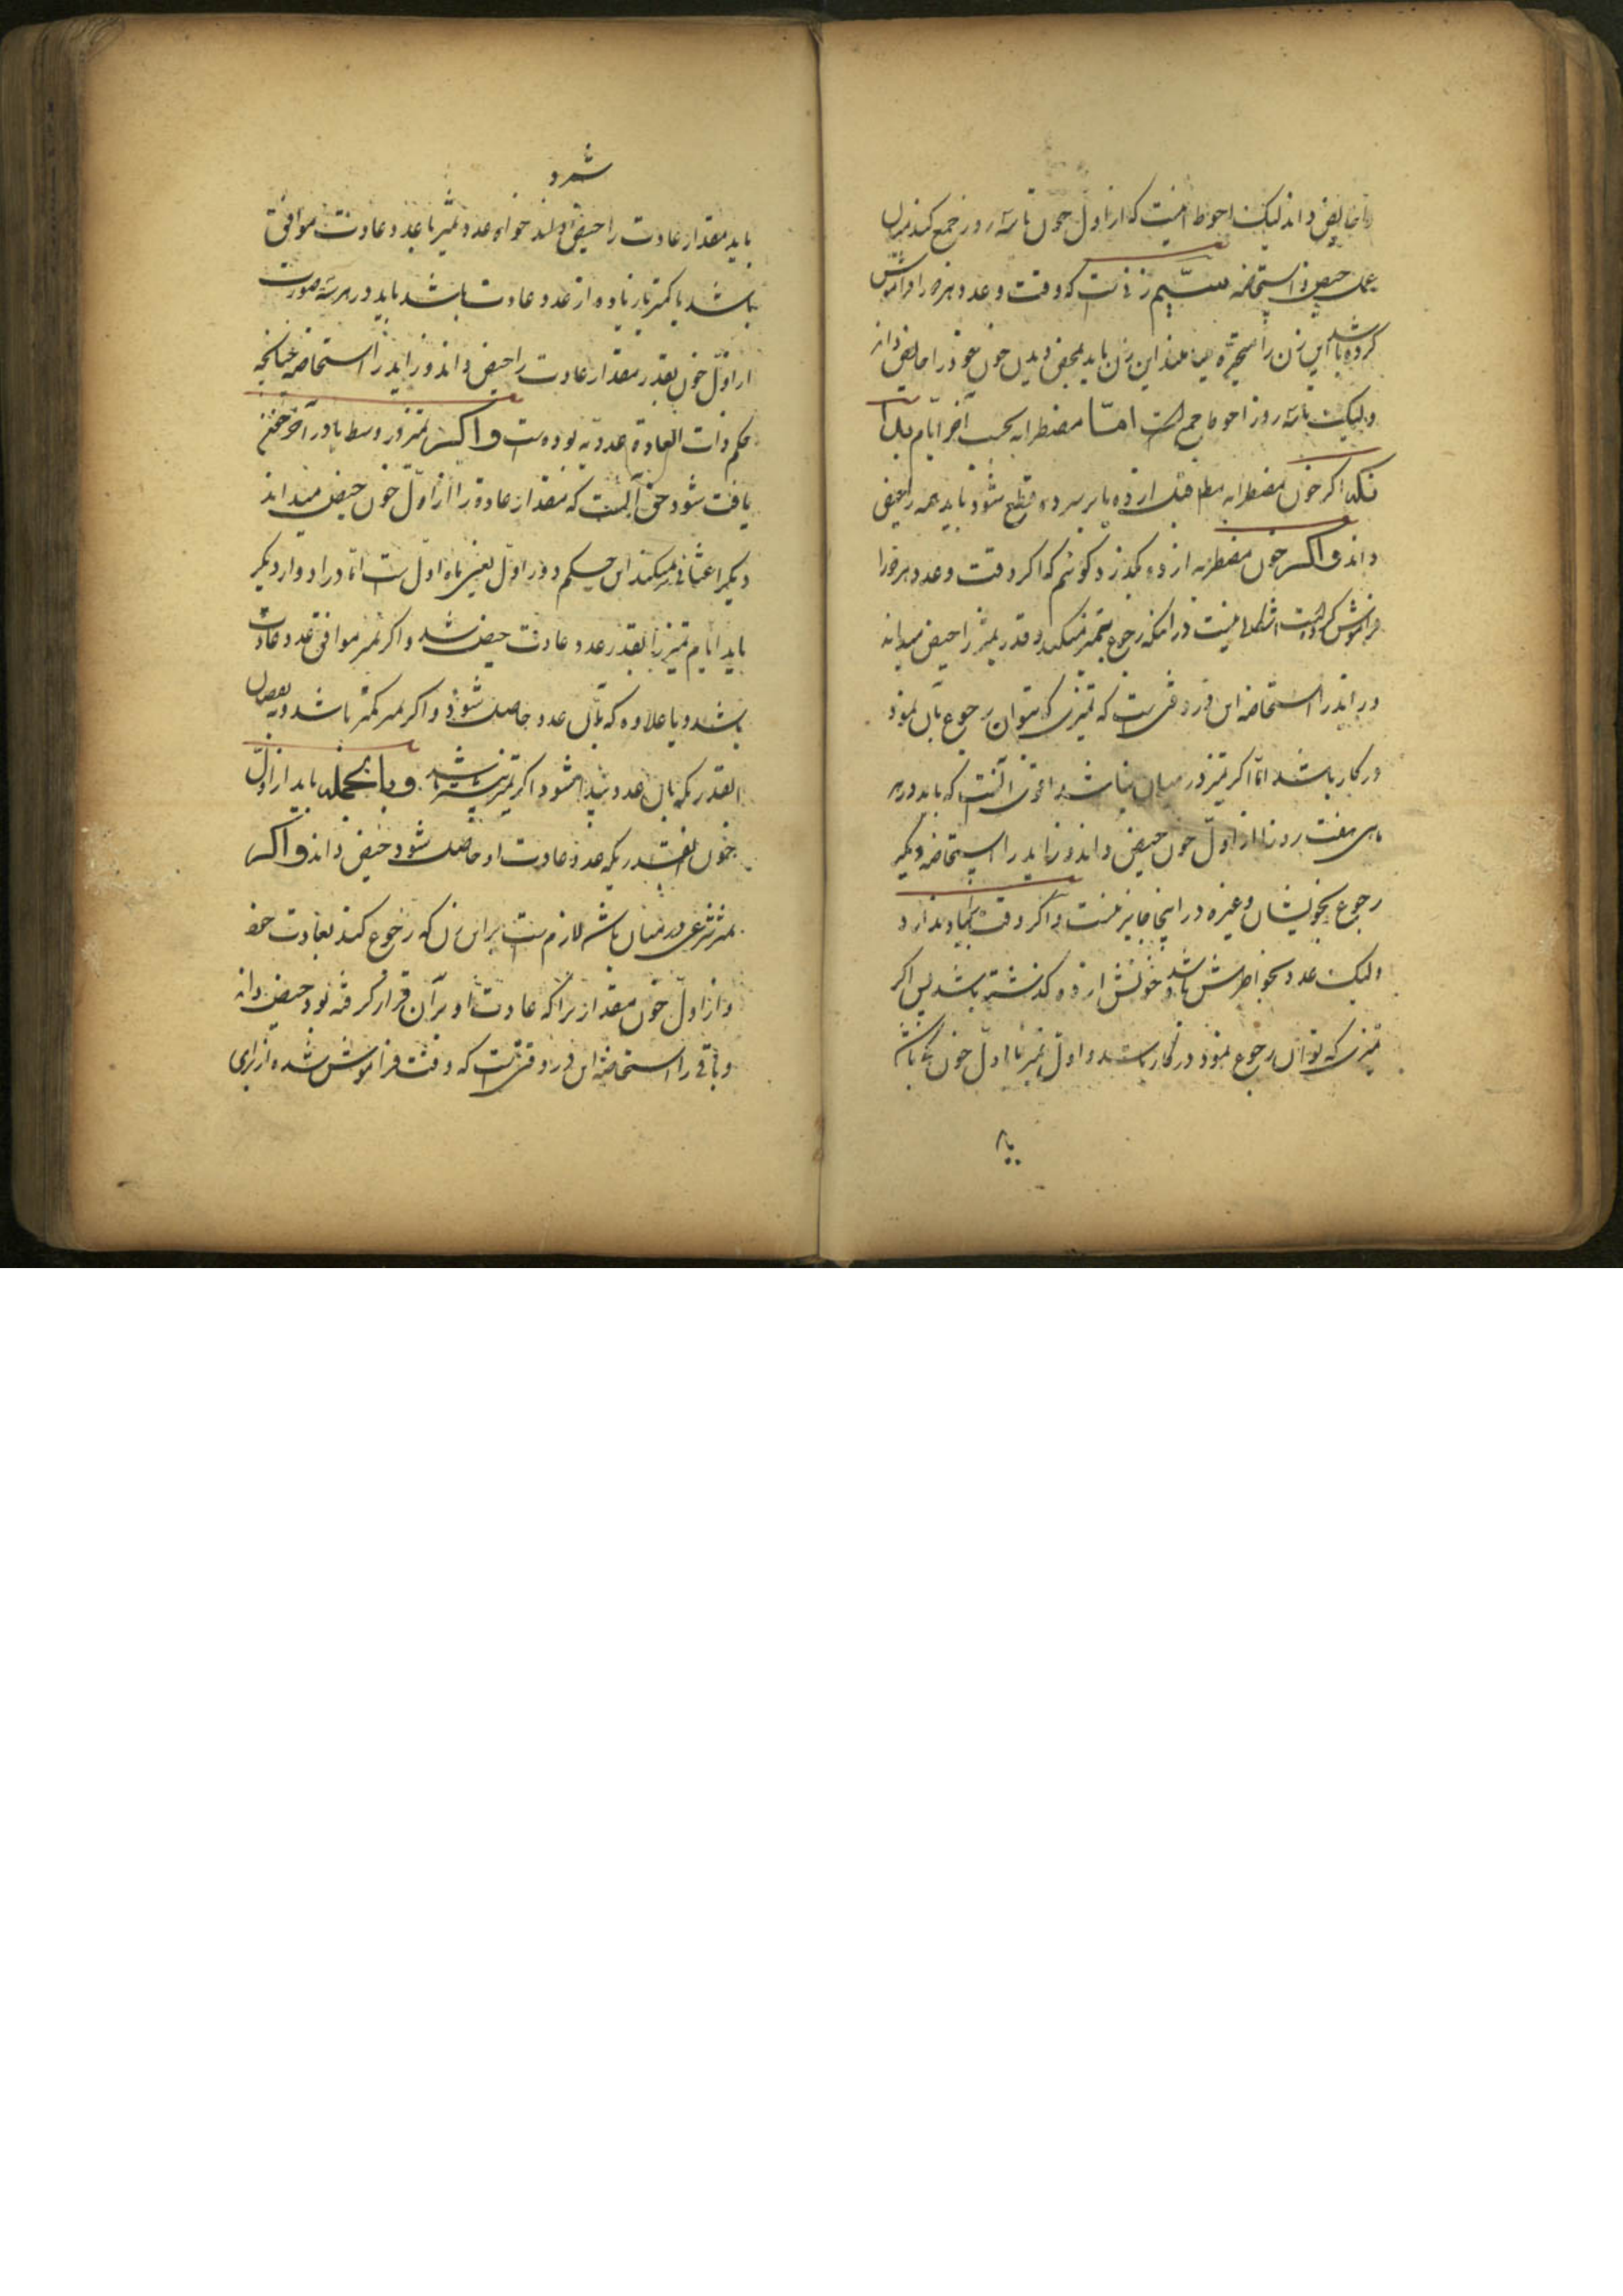 را حایض داند لیکن احوط اینست که از اول خون تا سه روز جمع کند میان
عمل حیض و استحاضه سیّم زنی است که وقت و عدد هر دو را فراموش
کرده باشد این زن را متحیره مینامند این زن باید بمحض دیدن خون خود را حایض داند
ولیکن تا سه روز احوط جمع است امّا مضطربه بحسب آخر ایّام بدان
که اگر خون مضطربه مطلقا قبل از ده یا بر سر ده قطع شود باید همه را حیض
داند و اگر خون مضطربه از ده بگذرد گوئیم که اگر وقت و عدد هر دو را
فراموش کرده است اشکالی نیست در اینکه رجوع بتمیز میکند و قدر تمیز را حیض میداند
و زاید را استحاضه این در وقتی است که تمیزی که بتوان رجوع بآن نمود
در کار باشد امّا اگر تمیز در میان نباشد اقوی آنست که باید در هر
ماهی هفت روز را از اول خون حیض داند و زاید را استحاضه و دیگر
رجوع بخویشان و غیره در اینجا جایز نیست و اگر وقت بیاد ندارد
ولیکن عدد بخواطرش باشد و خونش از ده گذشته باشد پس اگر
تمیزی که توان رجوع نمود در کار باشد و اول تمیز با اول خون یکی باشد
باید
شمرد
باید مقدار عادت را حیض داند خواه عدد تمیز با عدد عادت موافق
باشد یا کمتر یا زیاده از عدد عادت باشد باید در هر سه صورت
از اوّل خون بقدر مقدار عادت را حیض داند و زاید را استحاضه چنانچه
حکم ذات العادة عددیه بوده است و اگر تمیز در وسط یا در آخر خون
یافت شود حق آنست که مقدار عادة را از اوّل خون حیض میداند
و دیگر اعتنائی نمیکند این حکم دور اوّل یعنی ماه اول است امّا در ادوار دیگر
باید ایّام تمیز را بقدر عدد عادت حیض شمرد و اگر تمیز موافق عدد عادت
باشد و یا علاوه که بآن عدد حاصل شود و اگر تمیز کمتر باشد
القدریکه بآن عدد پیدا میشود اگر تمیز بیشتر باشد و بالجمله باید از اول
خون آنقدریکه عدد عادت او حاصل شود حیض داند و اگر
تمیز شرعی در میان نباشد لازم است بر این زن که رجوع کند بعادت خود
و از اول خون مقداریرا که عادت او بر آن قرار گرفته بود حیض داند
و باقی را استحاضه این در وقتی است که وقت فراموش شده از برای